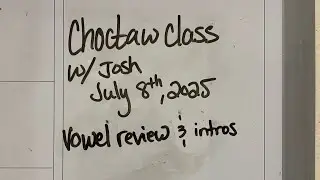 Choctaw class
w/ Josh
July 8th, 2025
Vowel review & intros